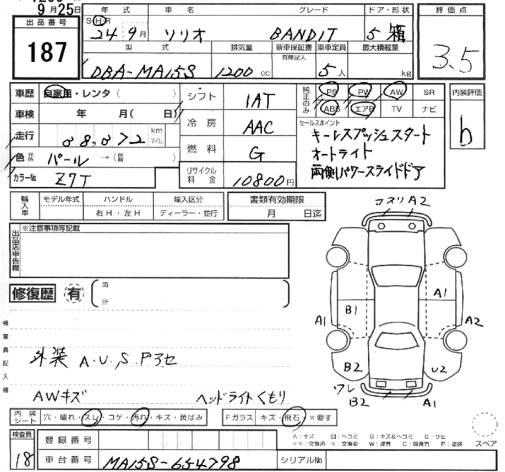 9月25日
出品番号 年式 車名 グレード ドア・形状 評価点
187 SHR 24年9月 ソリオ BANDIT 5 箱 3.5
型式 排気量 新車保証書 乗車定員 最大積載量
有無記入
DBA-MA15S 1200cc 5人 kg
車歴 自家用・レンタ( ) シフト 1AT 純正のみ PS PW AW SR 内装評価
ABS エアB TV ナビ
車検 年 月( 日) 冷房 AAC セールスポイント b
走行 km マイル キーレスプッシュスタート
燃料 G オートライト
色 パール → 両側パワースライドドア
カラーNo Z7T リサイクル料金 10800円
輸入車 モデル年式 ハンドル 輸入区分 書類有効期限
右H・左H ディーラー・並行 月 日迄
出品店申告欄 ※注意事項等記載
コスリ A2
修復歴 有
A1 B1 A1 A2
検査員記入欄
外装 A.U.S.Pアセ
B2 U2
ワレ B2 A1
AWキズ ヘッドライトくもり
内装シート 穴・破れ・スレ・コゲ・汚れ・キズ・黄ばみ Fガラス キズ・飛石×要す
検査員 登録番号 スペア
18 車台番号 MA15S-654798 シリアルNo